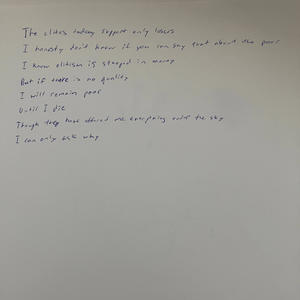 The elites today support only losers
I honesty don't know if you can say that about the poor
I know elitism is steeped in money
But if there is no quality
I will remain poor
Until I die
Though they have offered me everything under the sky
I can only ask why